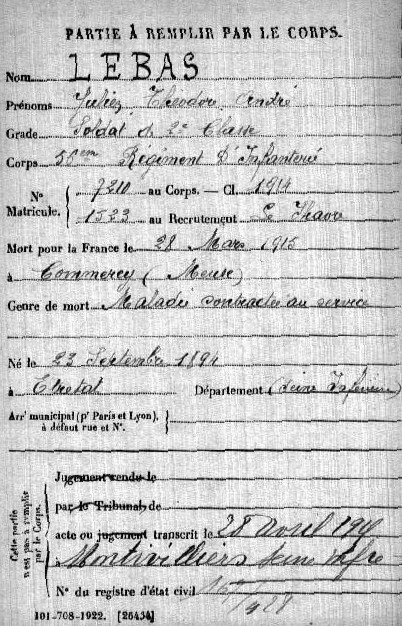 PARTIE À REMPLIR PAR LE CORPS.
Nom LEBAS
Prénoms Théodore André
Grade Soldat de 2e Classe
Corps Régiment d'Infanterie
No Matricule. 7210 au Corps. — Cl. 1914
1523 au Recrutement Le Havre
Mort pour la France le 28 Mars 1915
à Commercy (Meuse)
Genre de mort Maladie contractée au service
Né le 23 Septembre 1894
à Etretat Département (Seine Inférieure)
Arrt municipal (pr Paris et Lyon),
à défaut rue et No.
Cette partie n'est pas à remplir par le Corps.
Jugement rendu le
par le Tribunal de
acte ou jugement transcrit le 28 avril
à Montivilliers Seine Infre
No du registre d'état civil
101-708-1922. [26434]